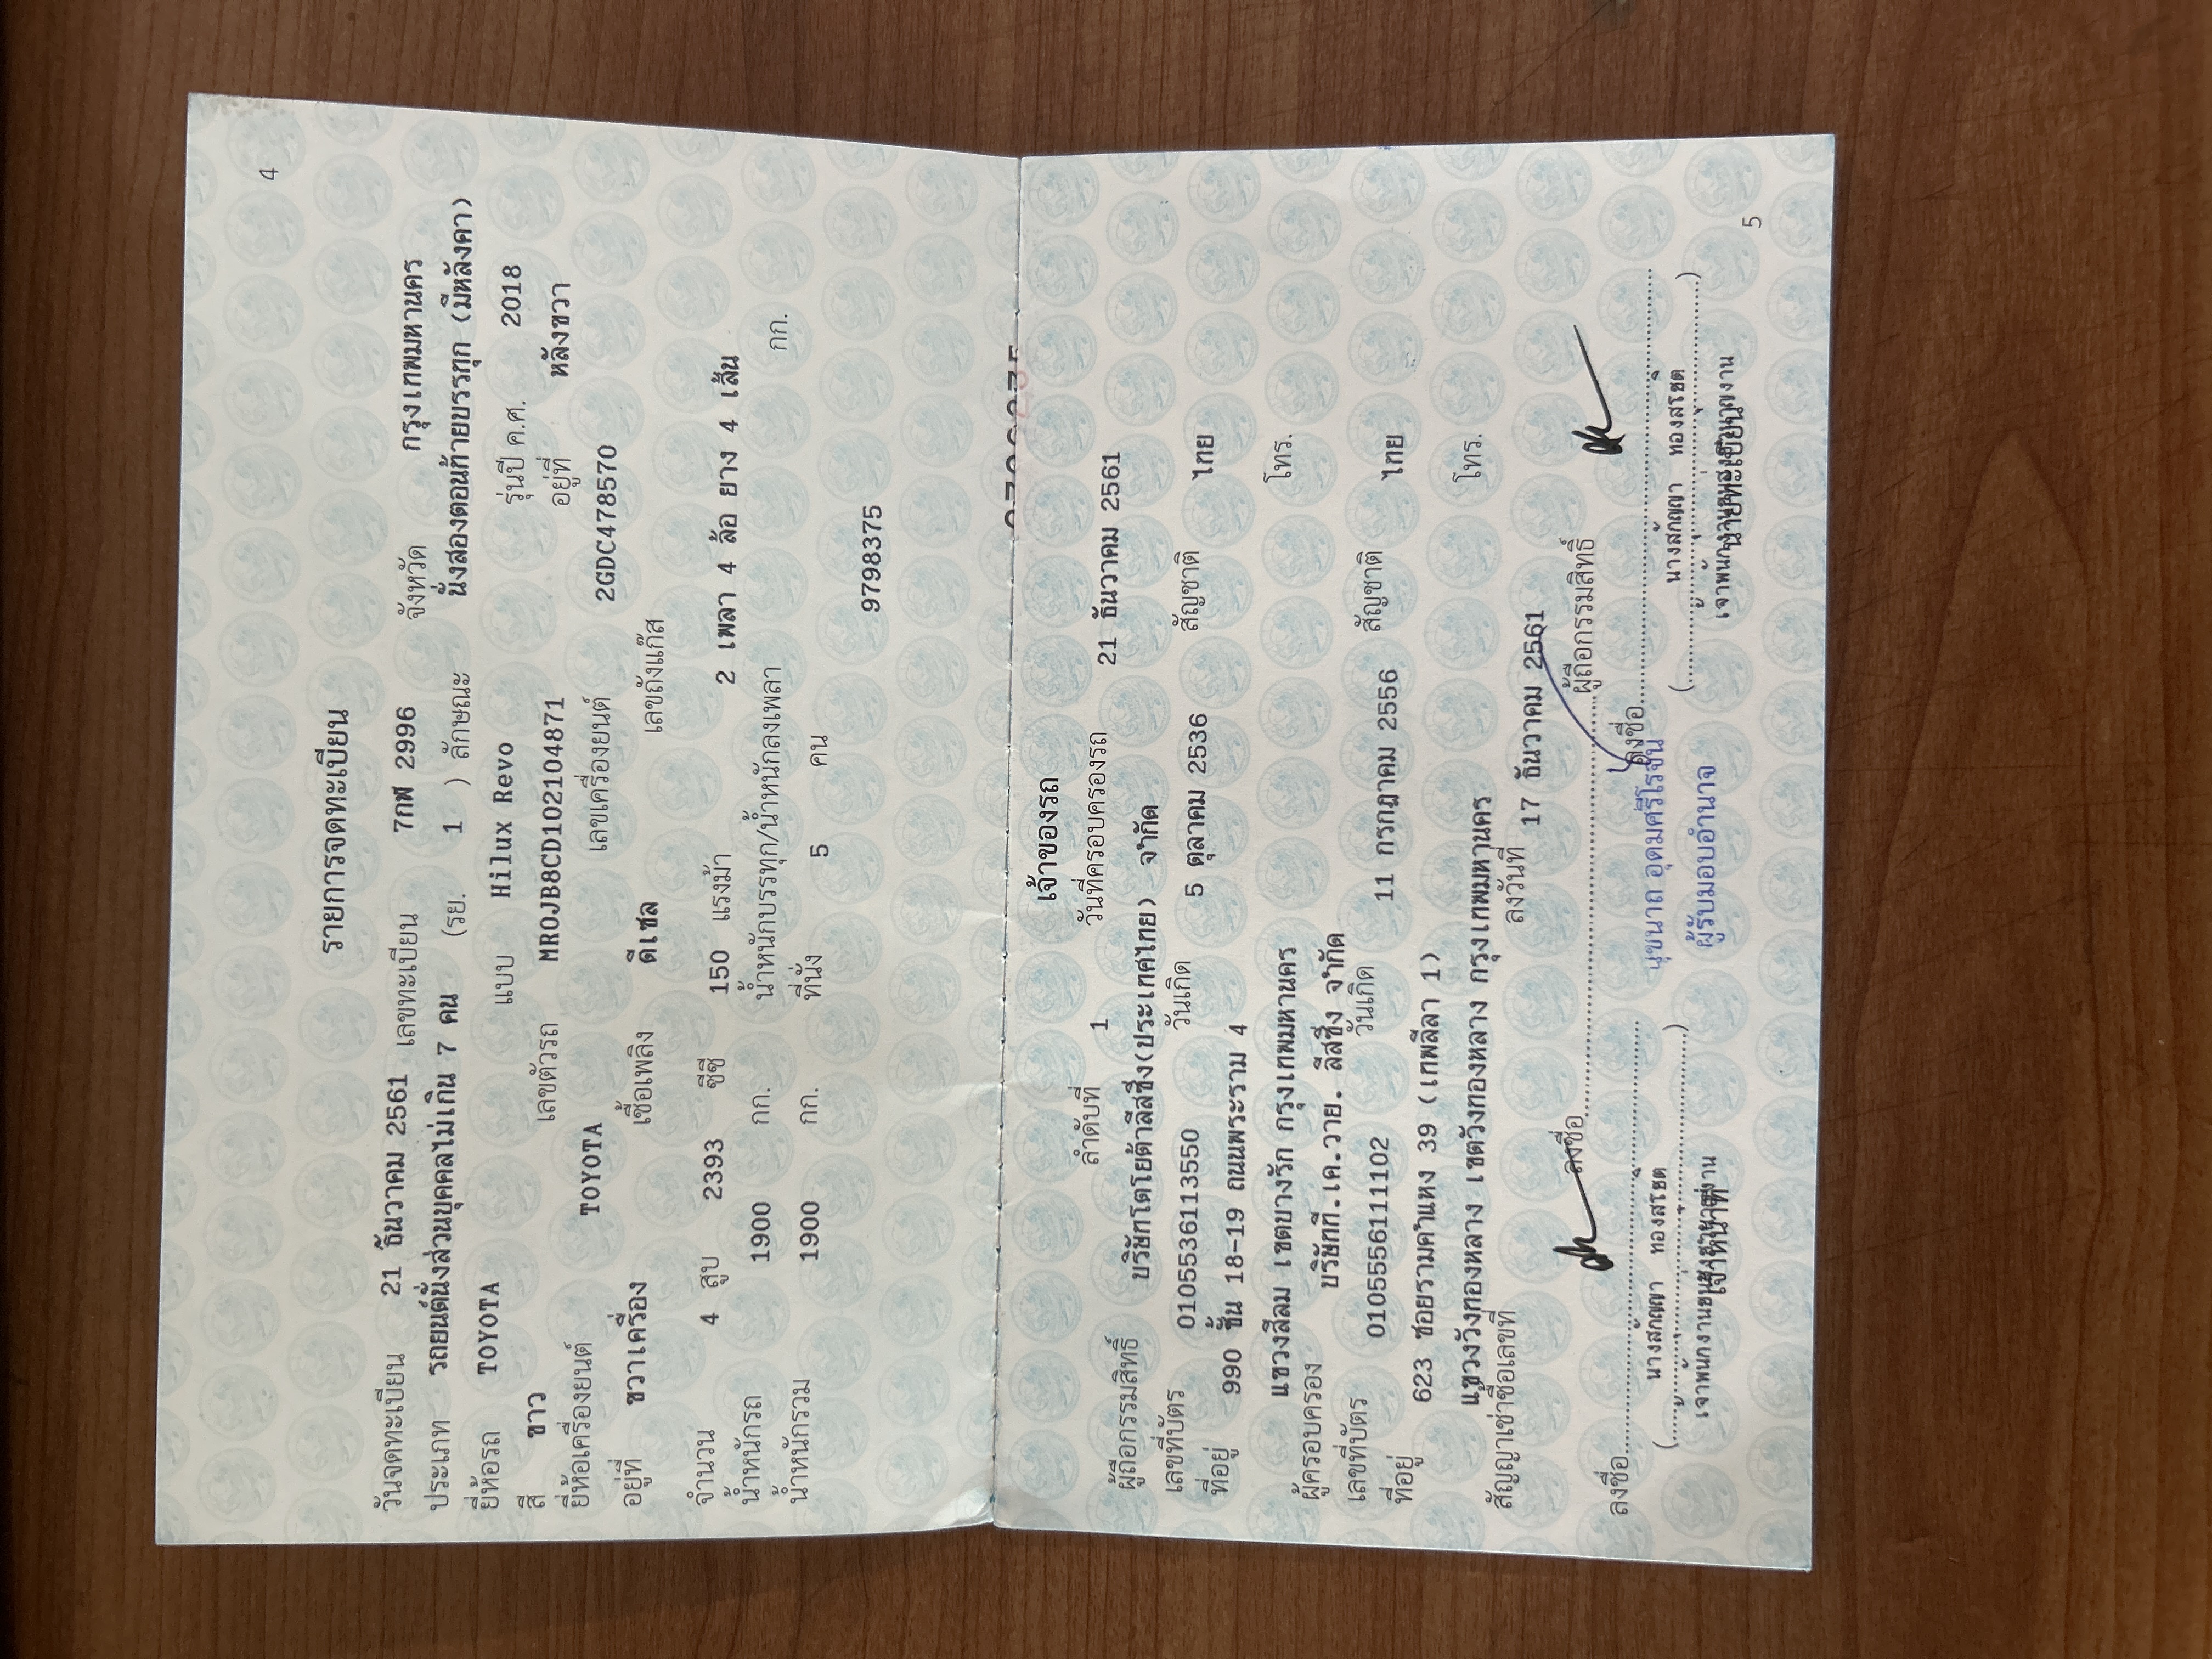 4
รายการจดทะเบียน
วันจดทะเบียน 21 ธันวาคม 2561 เลขทะเบียน 7กฬ 2996 จังหวัด กรุงเทพมหานคร
ประเภท รถยนต์นั่งส่วนบุคคลไม่เกิน 7 คน (รย. 1 ) ลักษณะ นั่งสองตอนท้ายบรรทุก (มีหลังคา)
ยี่ห้อรถ TOYOTA แบบ Hilux Revo รุ่นปี ค.ศ. 2018
สี ขาว เลขตัวรถ MR0JB8CD102104871 อยู่ที่ หลังขวา
ยี่ห้อเครื่องยนต์ TOYOTA เลขเครื่องยนต์ 2GDC478570
อยู่ที่ ขวาเครื่อง เชื้อเพลิง ดีเซล เลขถังแก๊ส
จำนวน 4 สูบ 2393 ซีซี 150 แรงม้า 2 เพลา 4 ล้อ ยาง 4 เส้น
น้ำหนักรถ 1900 กก. น้ำหนักบรรทุก/น้ำหนักลงเพลา กก.
น้ำหนักรวม 1900 กก. ที่นั่ง 5 คน
9798375
เจ้าของรถ
ลำดับที่ 1 วันที่ครอบครองรถ 21 ธันวาคม 2561
ผู้ถือกรรมสิทธิ์ บริษัทโตโยต้าลีสซิ่ง(ประเทศไทย) จำกัด
เลขที่บัตร 0105536113550 วันเกิด 5 ตุลาคม 2536 สัญชาติ ไทย
ที่อยู่ 990 ชั้น 18-19 ถนนพระราม 4
แขวงสีลม เขตบางรัก กรุงเทพมหานคร โทร.
ผู้ครอบครอง บริษัทที.เค.วาย. ลีสซิ่ง จำกัด
เลขที่บัตร 0105556111102 วันเกิด 11 กรกฎาคม 2556 สัญชาติ ไทย
ที่อยู่ 623 ซอยรามคำแหง 39 (เทพลีลา 1)
แขวงวังทองหลาง เขตวังทองหลาง กรุงเทพมหานคร โทร.
สัญญาเช่าซื้อเลขที่ ลงวันที่ 17 ธันวาคม 2561
ลงชื่อ ผู้ถือกรรมสิทธิ์
ลงชื่อ ลงชื่อ
นุชนาถ อุดมศรีไรจัน
นางสกัญญา ทองสรโชต นางสกัญญา ทองสรโชต
ผู้รับมอบอำนาจ
เจ้าหน้าที่ นายทะเบียน
5